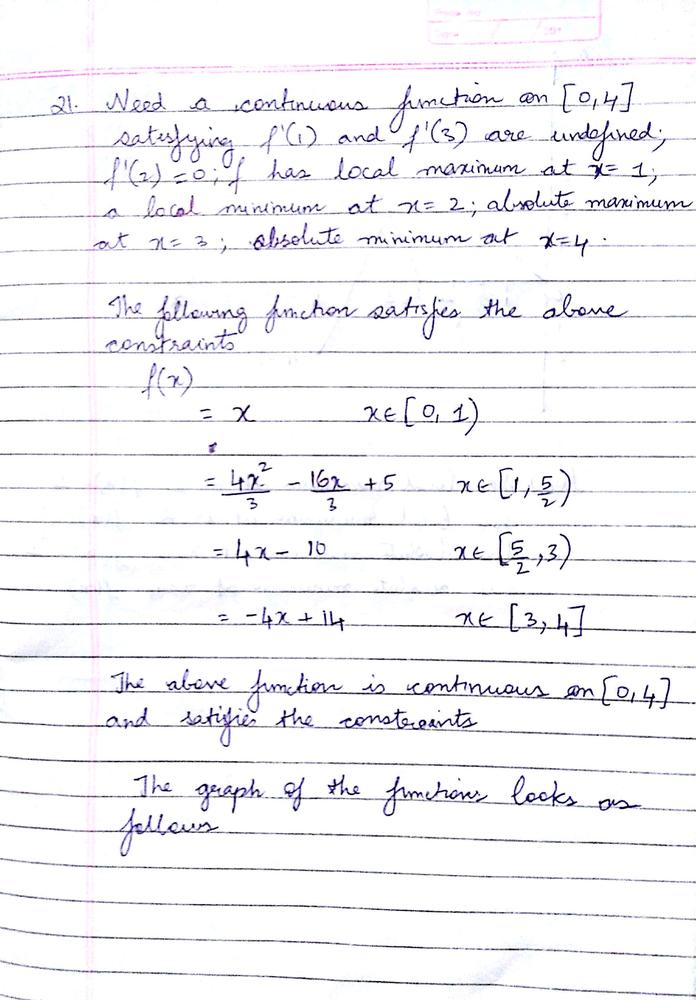 21. Need a continuous function on [0,4]
satisfying f'(1) and f'(3) are undefined;
f'(2) = 0; f has local maximum at x = 1;
a local minimum at x = 2; absolute maximum
at x = 3; absolute minimum at x=4.
The following function satisfies the above
constraints
f(x)
= x x∈[0,1)
= 4x²/3 - 16x/3 + 5 x∈[1, 5/2)
= 4x - 10 x∈[5/2, 3)
= -4x + 14 x∈ [3, 4]
The above function is continuous on [0,4]
and satisfies the constraints
The graph of the functions looks as
follows